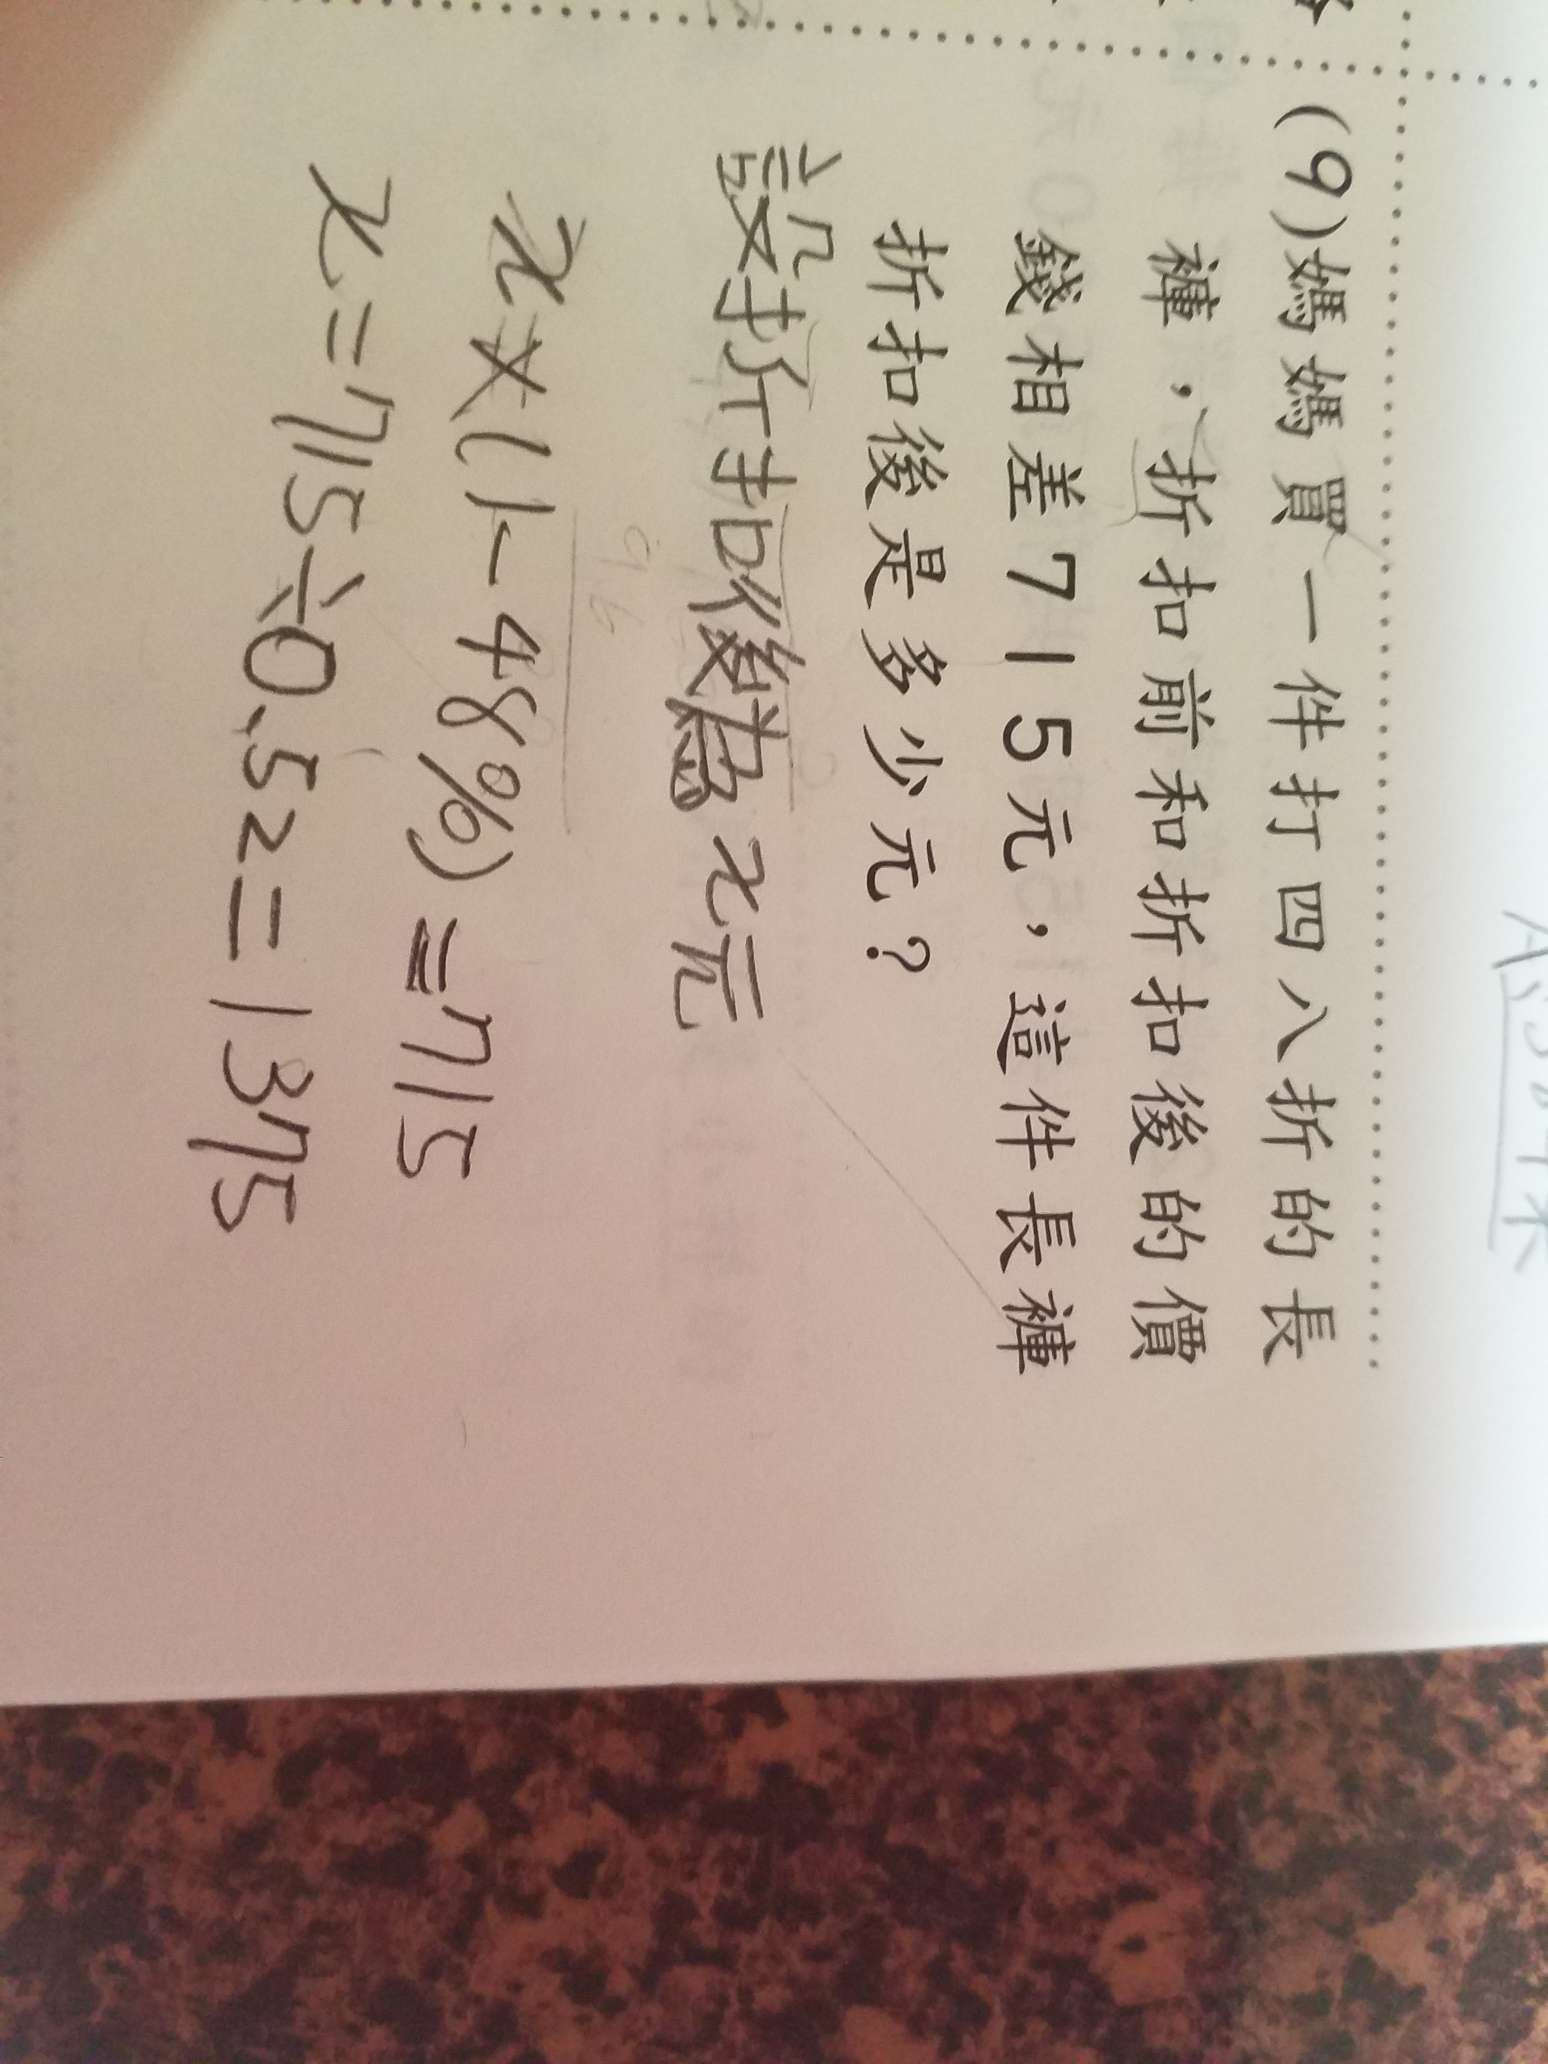 (9)媽媽買一件打四八折的長
褲，折扣前和折扣後的價
錢相差715元，這件長褲
折扣後是多少元？
設折扣後為x元
x×(1-48%)=715
x=715÷0.52=1375